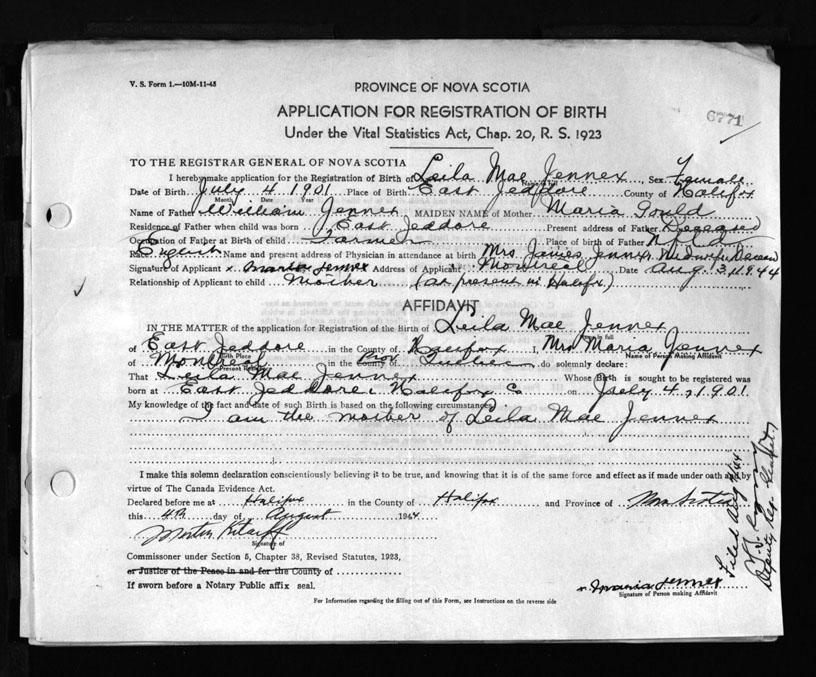 V. S. Form 1.—10M-11-45
PROVINCE OF NOVA SCOTIA
6771
APPLICATION FOR REGISTRATION OF BIRTH
Under the Vital Statistics Act, Chap. 20, R. S. 1923
TO THE REGISTRAR GENERAL OF NOVA SCOTIA
I hereby make application for the Registration of Birth of Leila Mae Jennex Sex Female
Name in full
Date of Birth July 4 1901 Place of Birth East Jeddore County of Halifax
Month Date Year
Name of Father William Jennex MAIDEN NAME of Mother Maria Gould
Residence of Father when child was born East Jeddore Present address of Father Deceased
Occupation of Father at Birth of child Farmer Place of birth of Father Nfld
Race English Name and present address of Physician in attendance at birth Mrs James Jennex Midwife
Signature of Applicant x Maria Jennex Address of Applicant Montreal Date Aug. 3, 1944
Relationship of Applicant to child Mother (at present in Halifx)
AFFIDAVIT
IN THE MATTER of the application for Registration of the Birth of Leila Mae Jennex
Name in full
of East Jeddore in the County of Halifax I, Mrs Maria Jennex
Birth Place Name of Person Making Affidavit
of Montreal in the County Prov Quebec do solemnly declare:
Present Residence
That Leila Mae Jennex Whose Birth is sought to be registered was
born at East Jeddore Halifax Co on July 4, 1901
My knowledge of the fact and date of such Birth is based on the following circumstances
I am the mother of Leila Mae Jennex
I make this solemn declaration conscientiously believing it to be true, and knowing that it is of the same force and effect as if made under oath and by
virtue of The Canada Evidence Act.
Declared before me at Halifax in the County of Halifax and Province of Nova Scotia
this 4th day of August 1944
Signature of
Commissoner under Section 5, Chapter 38, Revised Statutes, 1923,
or Justice of the Peace in and for the County of
If sworn before a Notary Public affix seal.
x Maria Jennex
Signature of Person making Affidavit
For Information regarding the filling out of this Form, see Instructions on the reverse side
Filed Aug 4/44
Deputy Reg.